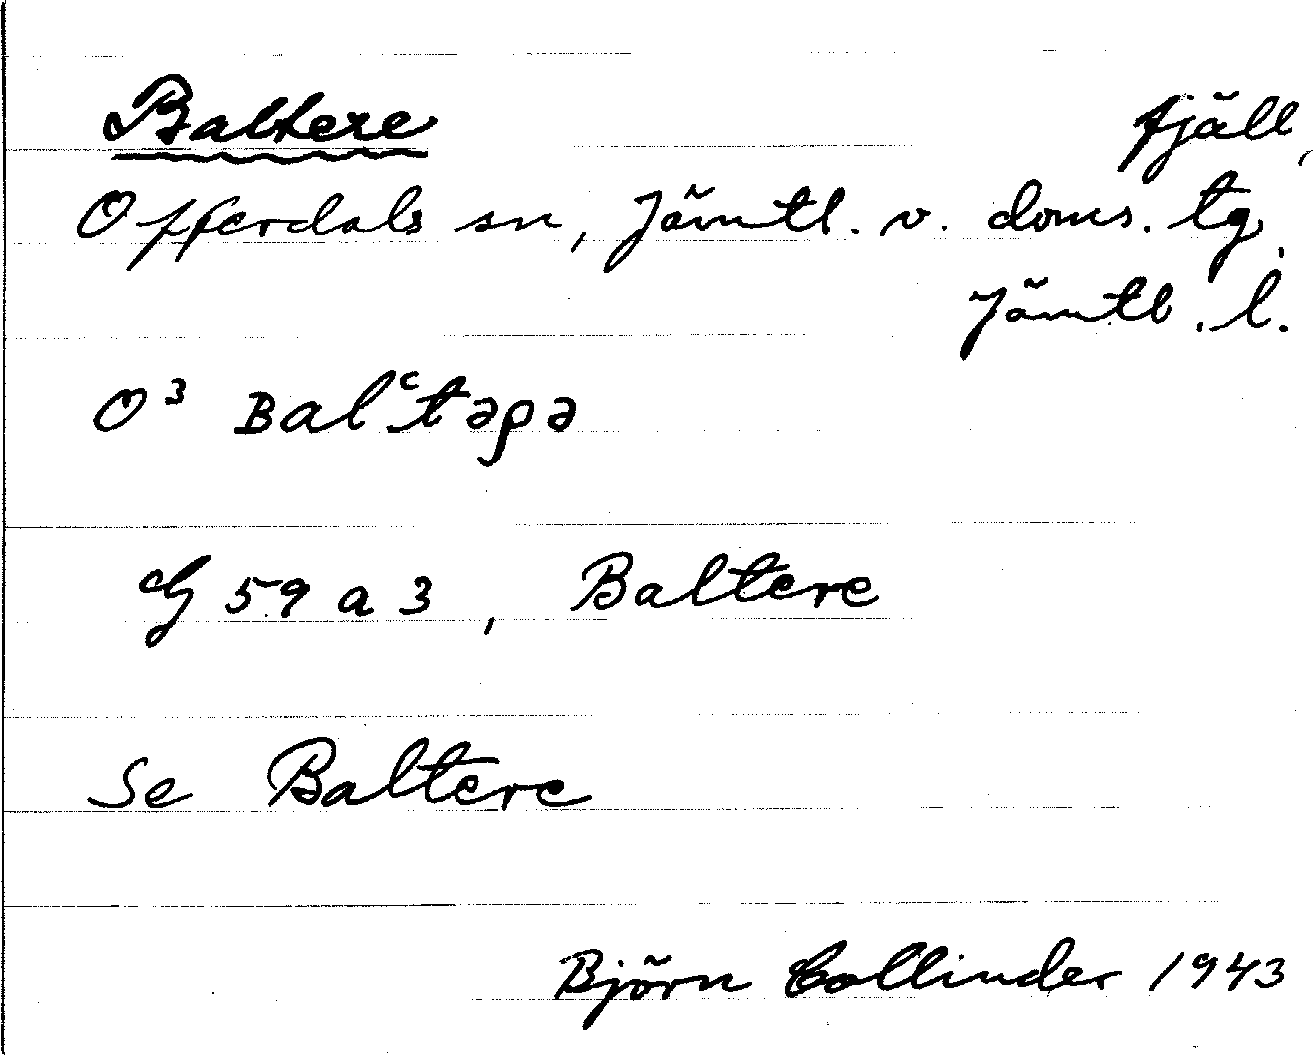 Baltere fjäll,
Offerdals sn, Jämtl. v. doms. tg,
Jämtl. l.
O³ Balʿtəpə
G 59 a 3, Baltere
Se Baltere
Björn Collinder 1943